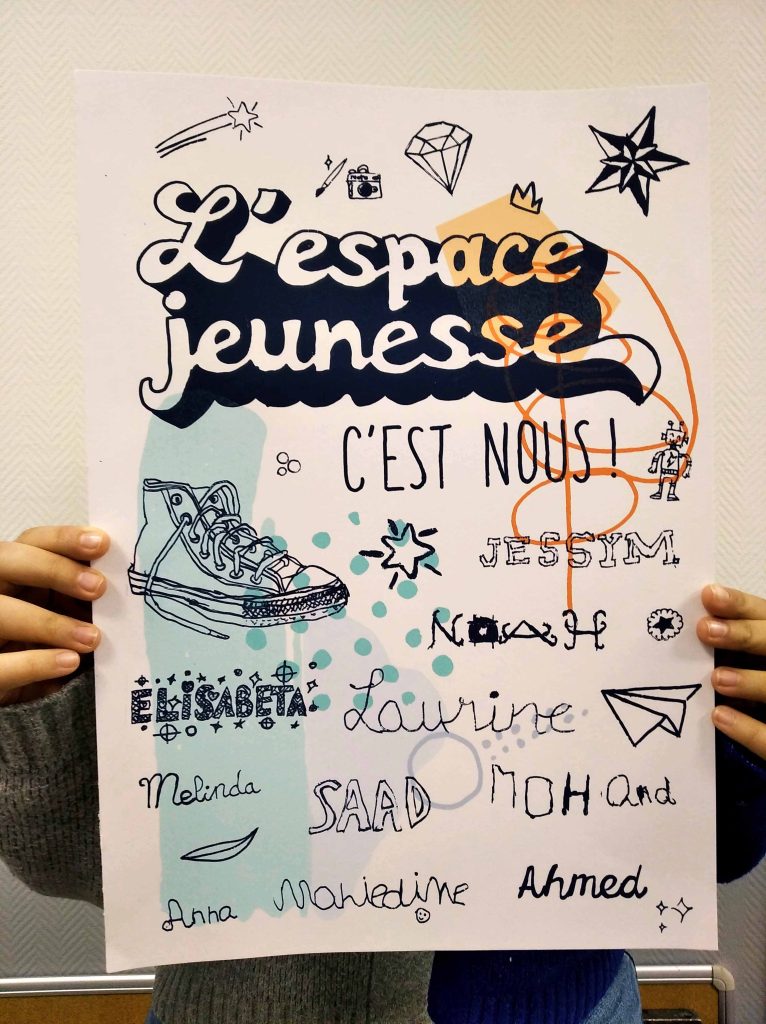 L'espace
jeunesse
C'EST NOUS!
JESSYM
NOAH
ELISABETA
Laurine
Melinda
SAAD
MOHAnd
Anna
Mahiedine
Ahmed